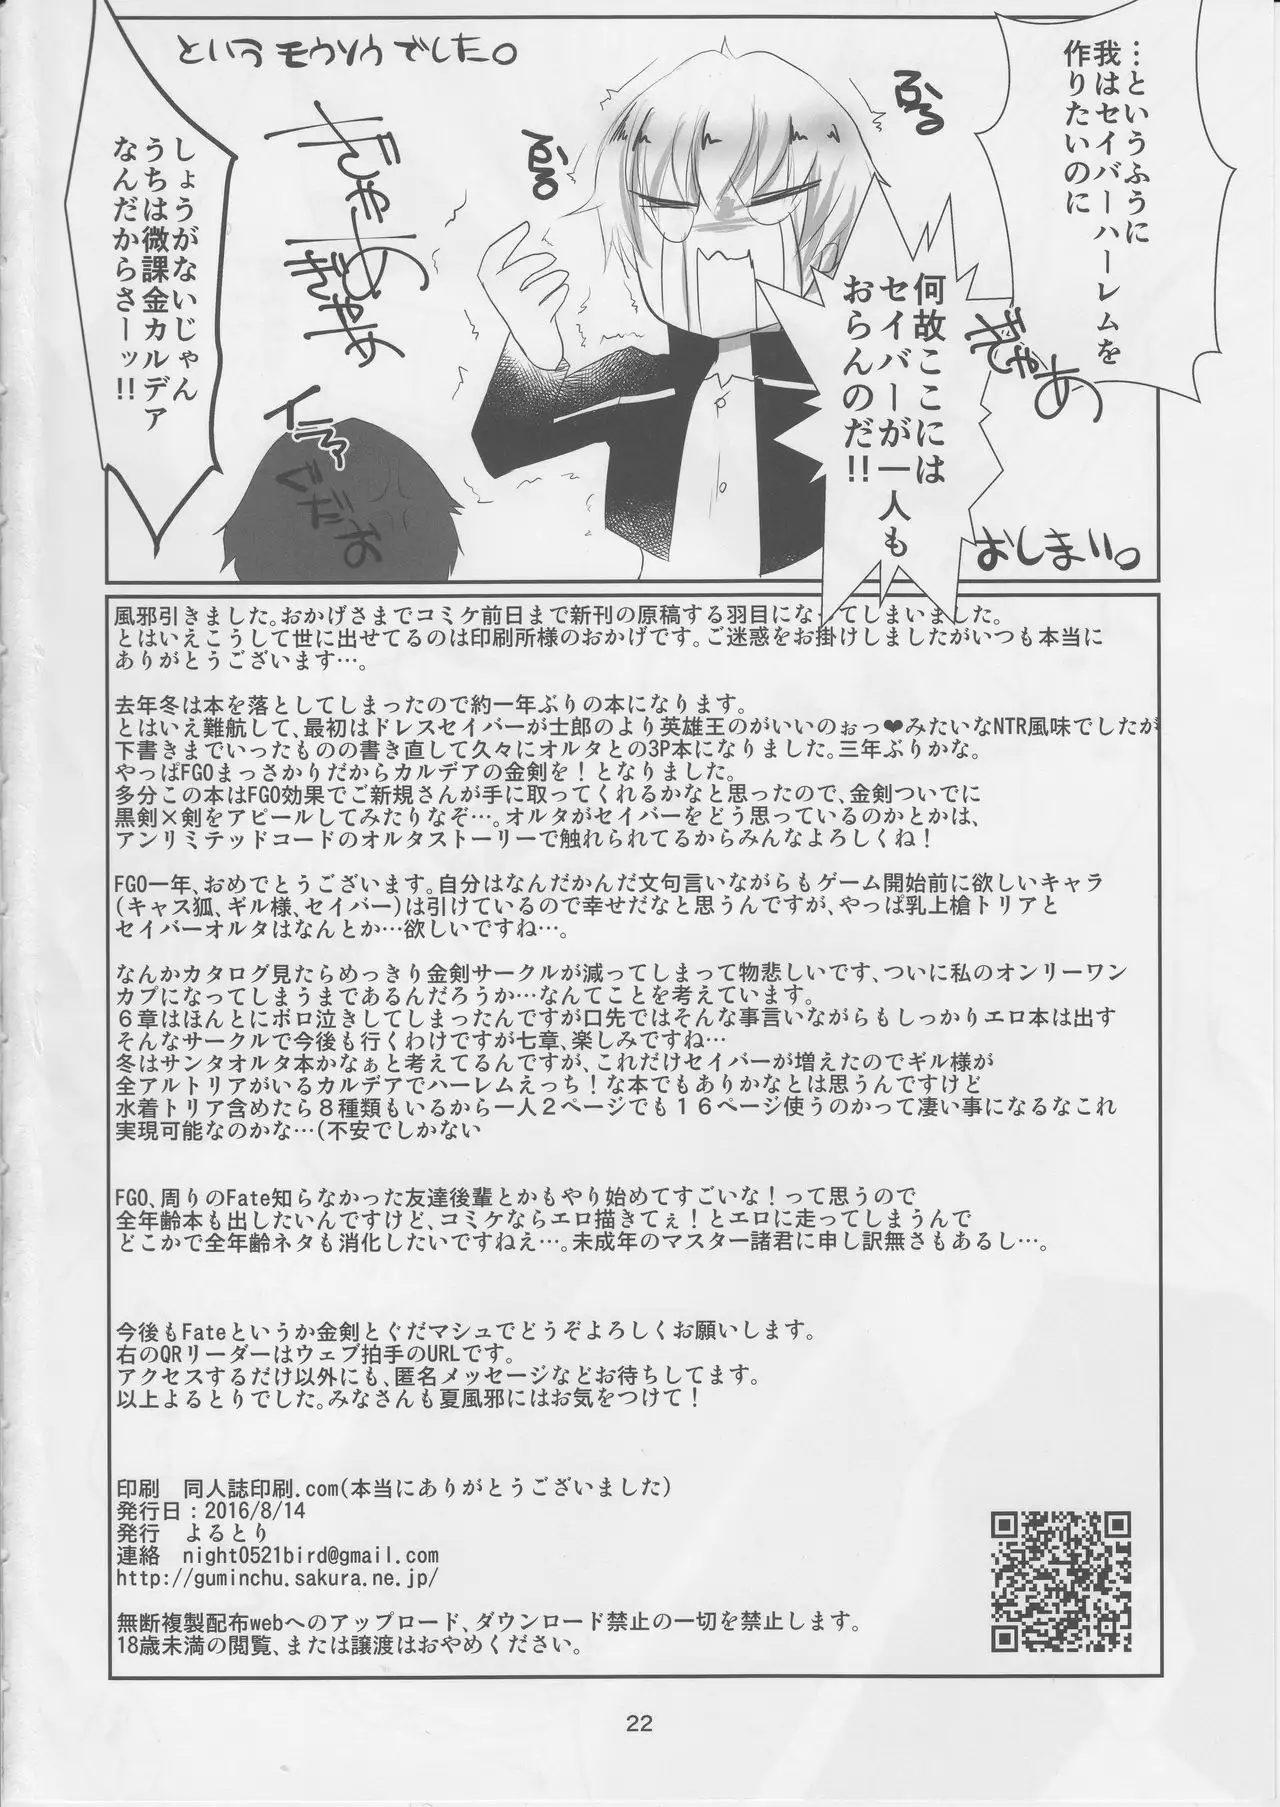 …というふうに
我はセイバーハーレムを
作りたいのに
ぶる
ぎゃあ
何故ここには
セイバーが一人も
おらんのだ!!
おしまい。
というモウソウでした。
ぎゃあ
ぎゃめ
イラッ
ぐだお
しょうがないじゃん
うちは微課金カルデア
なんだからさーッ!!
風邪引きました。おかげさまでコミケ前日まで新刊の原稿する羽目になってしまいました。
とはいえこうして世に出せてるのは印刷所様のおかげです。ご迷惑をお掛けしましたがいつも本当に
ありがとうございます…。
去年冬は本を落としてしまったので約一年ぶりの本になります。
とはいえ難航して、最初はドレスセイバーが士郎のより英雄王のがいいのぉっ❤みたいなNTR風味でしたが
下書きまでいったものの書き直して久々にオルタとの3P本になりました。三年ぶりかな。
やっぱFGOまっさかりだからカルデアの金剣を!となりました。
多分この本はFGO効果でご新規さんが手に取ってくれるかなと思ったので、金剣ついでに
黒剣×剣をアピールしてみたりなぞ…。オルタがセイバーをどう思っているのかとかは、
アンリミテッドコードのオルタストーリーで触れられてるからみんなよろしくね!
FGO一年、おめでとうございます。自分はなんだかんだ文句言いながらもゲーム開始前に欲しいキャラ
(キャス狐、ギル様、セイバー)は引けているので幸せだなと思うんですが、やっぱ乳上槍トリアと
セイバーオルタはなんとか…欲しいですね…。
なんかカタログ見たらめっきり金剣サークルが減ってしまって物悲しいです、ついに私のオンリーワン
カプになってしまうまであるんだろうか…なんてことを考えています。
6章はほんとにボロ泣きしてしまったんですが口先ではそんな事言いながらもしっかりエロ本は出す
そんなサークルで今後も行くわけですが七章、楽しみですね…
冬はサンタオルタ本かなぁと考えてるんですが、これだけセイバーが増えたのでギル様が
全アルトリアがいるカルデアでハーレムえっち!な本でもありかなとは思うんですけど
水着トリア含めたら8種類もいるから一人2ページでも16ページ使うのかって凄い事になるなこれ
実現可能なのかな…(不安でしかない
FGO、周りのFate知らなかった友達後輩とかもやり始めてすごいな!って思うので
全年齢本も出したいんですけど、コミケならエロ描きてぇ!とエロに走ってしまうんで
どこかで全年齢ネタも消化したいですねえ…。未成年のマスター諸君に申し訳無さもあるし…。
今後もFateというか金剣とぐだマシュでどうぞよろしくお願いします。
右のQRリーダーはウェブ拍手のURLです。
アクセスするだけ以外にも、匿名メッセージなどお待ちしてます。
以上よるとりでした。みなさんも夏風邪にはお気をつけて!
印刷 同人誌印刷.com(本当にありがとうございました)
発行日:2016/8/14
発行 よるとり
連絡 night0521bird@gmail.com
http://guminchu.sakura.ne.jp/
無断複製配布webへのアップロード、ダウンロード禁止の一切を禁止します。
18歳未満の閲覧、または譲渡はおやめください。
22